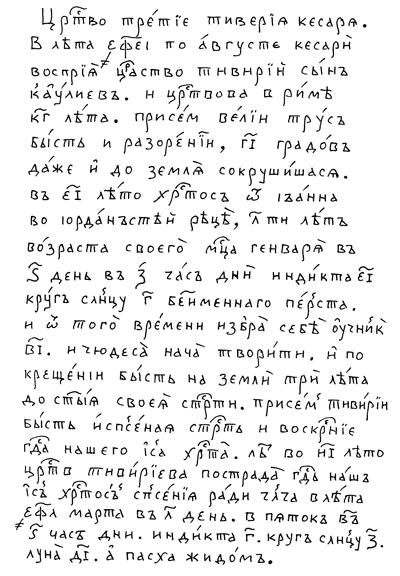 Црⷭ҇тво тре́тїе тиверїѧ кесарѧ.
В лѣта ҂ефе҃і по а́вгусте кесарѝ
воспрїѧ̀ црⷭ҇аство тивирїѝ сы́нъ
кау́лиевъ. и црⷭ҇твова в ри́мѣ
к҃г лѣта. присе́м ве́лїи трꙋсъ
бы́сть и разоре́нїи, г҃і градо́въ
да́же и҆ до землѧ̀ сокруши́шасѧ.
въ е҃і лѣ́то хрⷭ҇тосъ ѿ іѡа́нна
во іорда́нъстѣй рѣцѣ̀, л҃ ти лѣ́тъ
во́зраста своегѡ̀ мⷭ҇ца генварѧ̀ въ
ѕ҃ день въ з҃ ча́съ днѝ инди́кта е҃і
кру́гъ сл҃нцу г҃ бе́йменнаго пе́рьста.
и ѿ того̀ вре́мени избра̀ себѣ̀ оу҆чн҃къ
в҃і. и чюдеса̀ нача̀ твори́ти. и҆ по
креще́нїи бы́сть на землѝ трѝ лѣ́та
до ст҃ы́ѧ своеѧ̀ стрⷭ҇ти. присе́м тиви́рїи
бы́сть и҆спⷭ҇се́наѧ стрⷭ҇ть и воскрⷭ҇нїе
гдⷭ҇а нашего іс҃а хрⷭ҇та̀. лѣ̀ во и҃і лѣ́то
црⷭ҇тв тиви́рїева пострада̀ гдⷭ҇ь на́шъ
іс҃ъ хрⷭ҇то́съ спⷭ҇се́нїѧ ра́ди чл҃ча в лѣ́та
҂ефл҃ марта въ л҃ день. в пѧто́къ въ
ѕ҃ часъ дни. инди́кта г҃. кругъ сл҃нцу з҃.
луна̀ д҃і. а҆ пасха жидо́мъ.